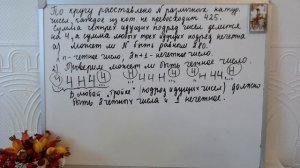 По кругу расставлено N различных натур.
чисел, каждое из кот. не превосходит 425.
Сумма четырёх идущих подряд чисел делится
на 4, а сумма любых трёх идущих подряд нечетна.
а) Может ли N быть равным 280?
n - четное число, 3n+1 - нечетное число.
2) Проверим может ли быть четное число.
Ч Н Ч Ч Н Ч
В любой "тройке" подряд идущих чисел должно
быть 2 четных числа и 1 нечетное!